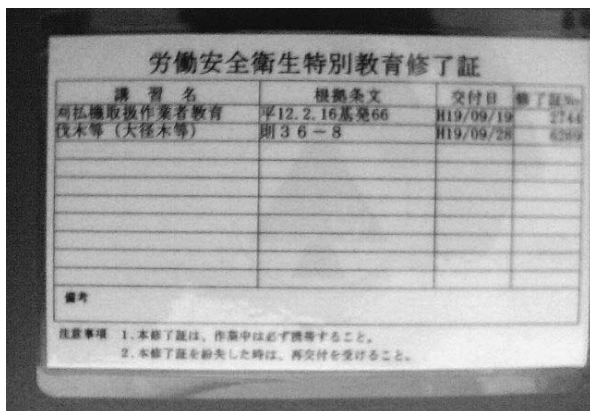 労働安全衛生特別教育修了証
講習名 根拠条文 交付日 修了証No
刈払機取扱作業者教育 平12.2.16基発66 H19/09/19 2744
伐木等(大径木等) 則36-8 H19/09/28 6269
備考
注意事項 1.本修了証は、作業中は必ず携帯すること。
2.本修了証を紛失した時は、再交付を受けること。